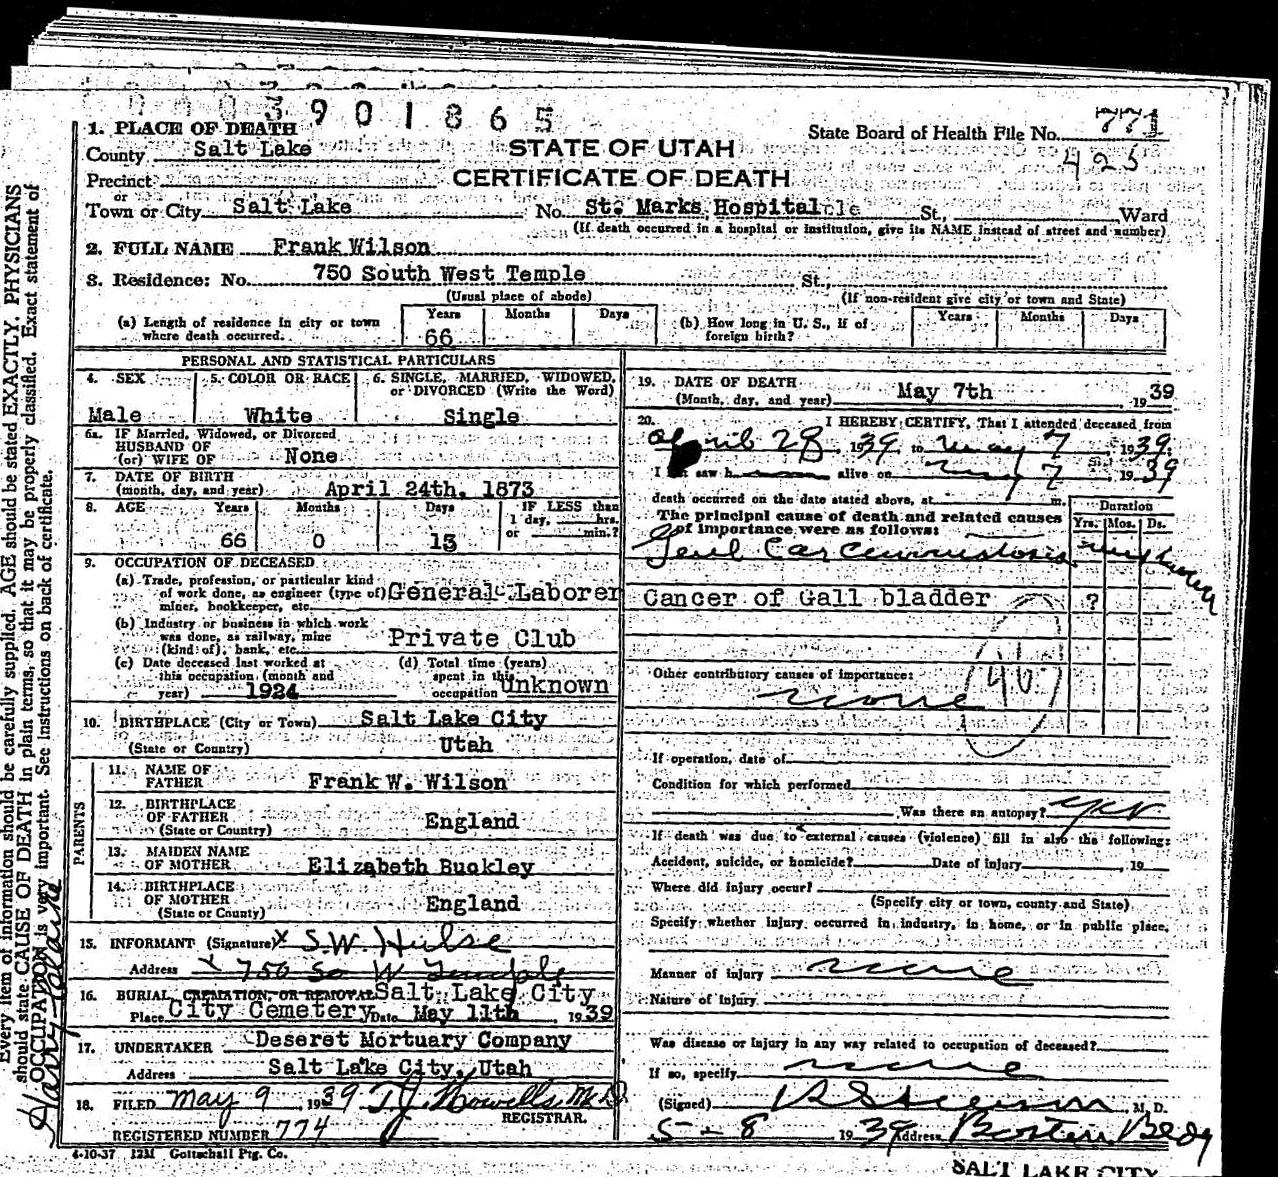 3901865
1. PLACE OF DEATH
State Board of Health File No. 771
County Salt Lake
STATE OF UTAH
425
Precinct
CERTIFICATE OF DEATH
or
Town or City Salt Lake No. St. Marks Hospital St., Ward
(If death occurred in a hospital or institution, give its NAME instead of street and number)
2. FULL NAME Frank Wilson
3. Residence: No. 750 South West Temple St.,
(Usual place of abode) (If non-resident give city or town and State)
(a) Length of residence in city or town where death occurred. Years 66 Months Days
(b) How long in U. S., if of foreign birth? Years Months Days
PERSONAL AND STATISTICAL PARTICULARS
4. SEX 5. COLOR OR RACE 6. SINGLE, MARRIED, WIDOWED, or DIVORCED (Write the Word)
Male White Single
6a. IF Married, Widowed, or Divorced
HUSBAND OF
(or) WIFE OF None
7. DATE OF BIRTH
(month, day, and year) April 24th, 1873
8. AGE Years Months Days IF LESS than
1 day, hrs.
66 0 13 or min.?
9. OCCUPATION OF DECEASED
(a) Trade, profession, or particular kind
of work done, as engineer (type of) General Laborer
miner, bookkeeper, etc.
(b) Industry or business in which work
was done, as railway, mine Private Club
(kind of), bank, etc.
(c) Date deceased last worked at
this occupation (month and
year) 1924
(d) Total time (years)
spent in this
occupation Unknown
10. BIRTHPLACE (City or Town) Salt Lake City
(State or Country) Utah
PARENTS
11. NAME OF
FATHER Frank W. Wilson
12. BIRTHPLACE
OF FATHER England
(State or Country)
13. MAIDEN NAME
OF MOTHER Elizabeth Buckley
14. BIRTHPLACE
OF MOTHER England
(State or County)
15. INFORMANT (Signature) x S.W. Hulse
Address 750 So W Temple
16. BURIAL, CREMATION, OR REMOVAL Salt Lake City
Place City Cemetery Date May 11th, 1939
17. UNDERTAKER Deseret Mortuary Company
Address Salt Lake City, Utah
18. FILED May 9, 1939 T.J. Howells, M.D.
REGISTRAR.
REGISTERED NUMBER 774
4-10-37 12M Gottschall Ptg. Co.
19. DATE OF DEATH
(Month, day, and year) May 7th 1939
20. I HEREBY CERTIFY, That I attended deceased from
April 28, 1939, to May 7, 1939.
I saw h alive on May 7, 1939
death occurred on the date stated above, at m.
The principal cause of death and related causes
of importance were as follows:
Duration
Yrs. Mos. Ds.
Genl Carcinomatosis
Cancer of Gall bladder ?
Other contributory causes of importance:
none
46
If operation, date of
Condition for which performed
Was there an autopsy? yes
If death was due to external causes (violence) fill in also the following:
Accident, suicide, or homicide? Date of injury , 19
Where did injury occur?
(Specify city or town, county and State)
Specify whether injury occurred in industry, in home, or in public place.
Manner of injury none
Nature of injury
Was disease or injury in any way related to occupation of deceased?
If so, specify none
(Signed) M. D.
5-8 1939 Address Boston Bldg
SALT LAKE CITY
Every item of information should be carefully supplied. AGE should be stated EXACTLY. PHYSICIANS
should state CAUSE OF DEATH in plain terms, so that it may be properly classified. Exact statement of
OCCUPATION is very important. See instructions on back of certificate.